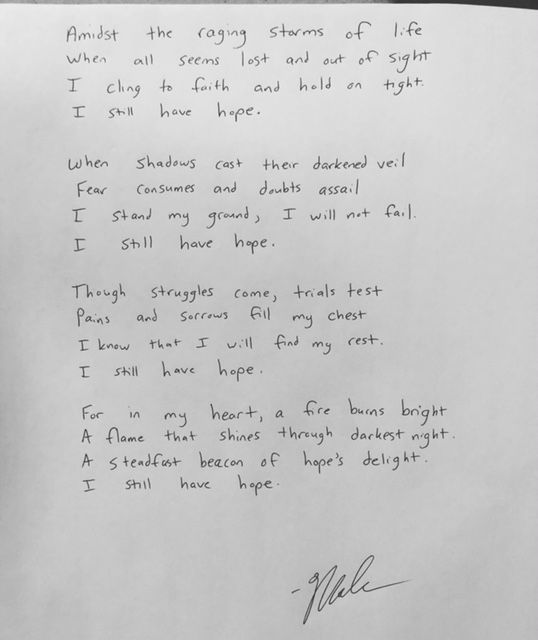 Amidst the raging storms of life
When all seems lost and out of sight
I cling to faith and hold on tight.
I still have hope.
When shadows cast their darkened veil
Fear consumes and doubts assail
I stand my ground, I will not fail.
I still have hope.
Though struggles come, trials test
Pains and sorrows fill my chest
I know that I will find my rest.
I still have hope.
For in my heart, a fire burns bright
A flame that shines through darkest night.
A steadfast beacon of hope's delight.
I still have hope.